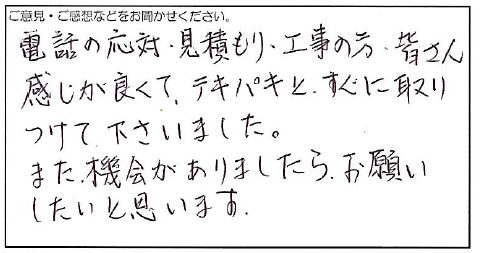 ご意見・ご感想などをお聞かせください。
電話の応対・見積もり・工事の方・皆さん
感じが良くて、テキパキと、すぐに取り
つけて下さいました。
また、機会がありましたら、お願い
したいと思います。